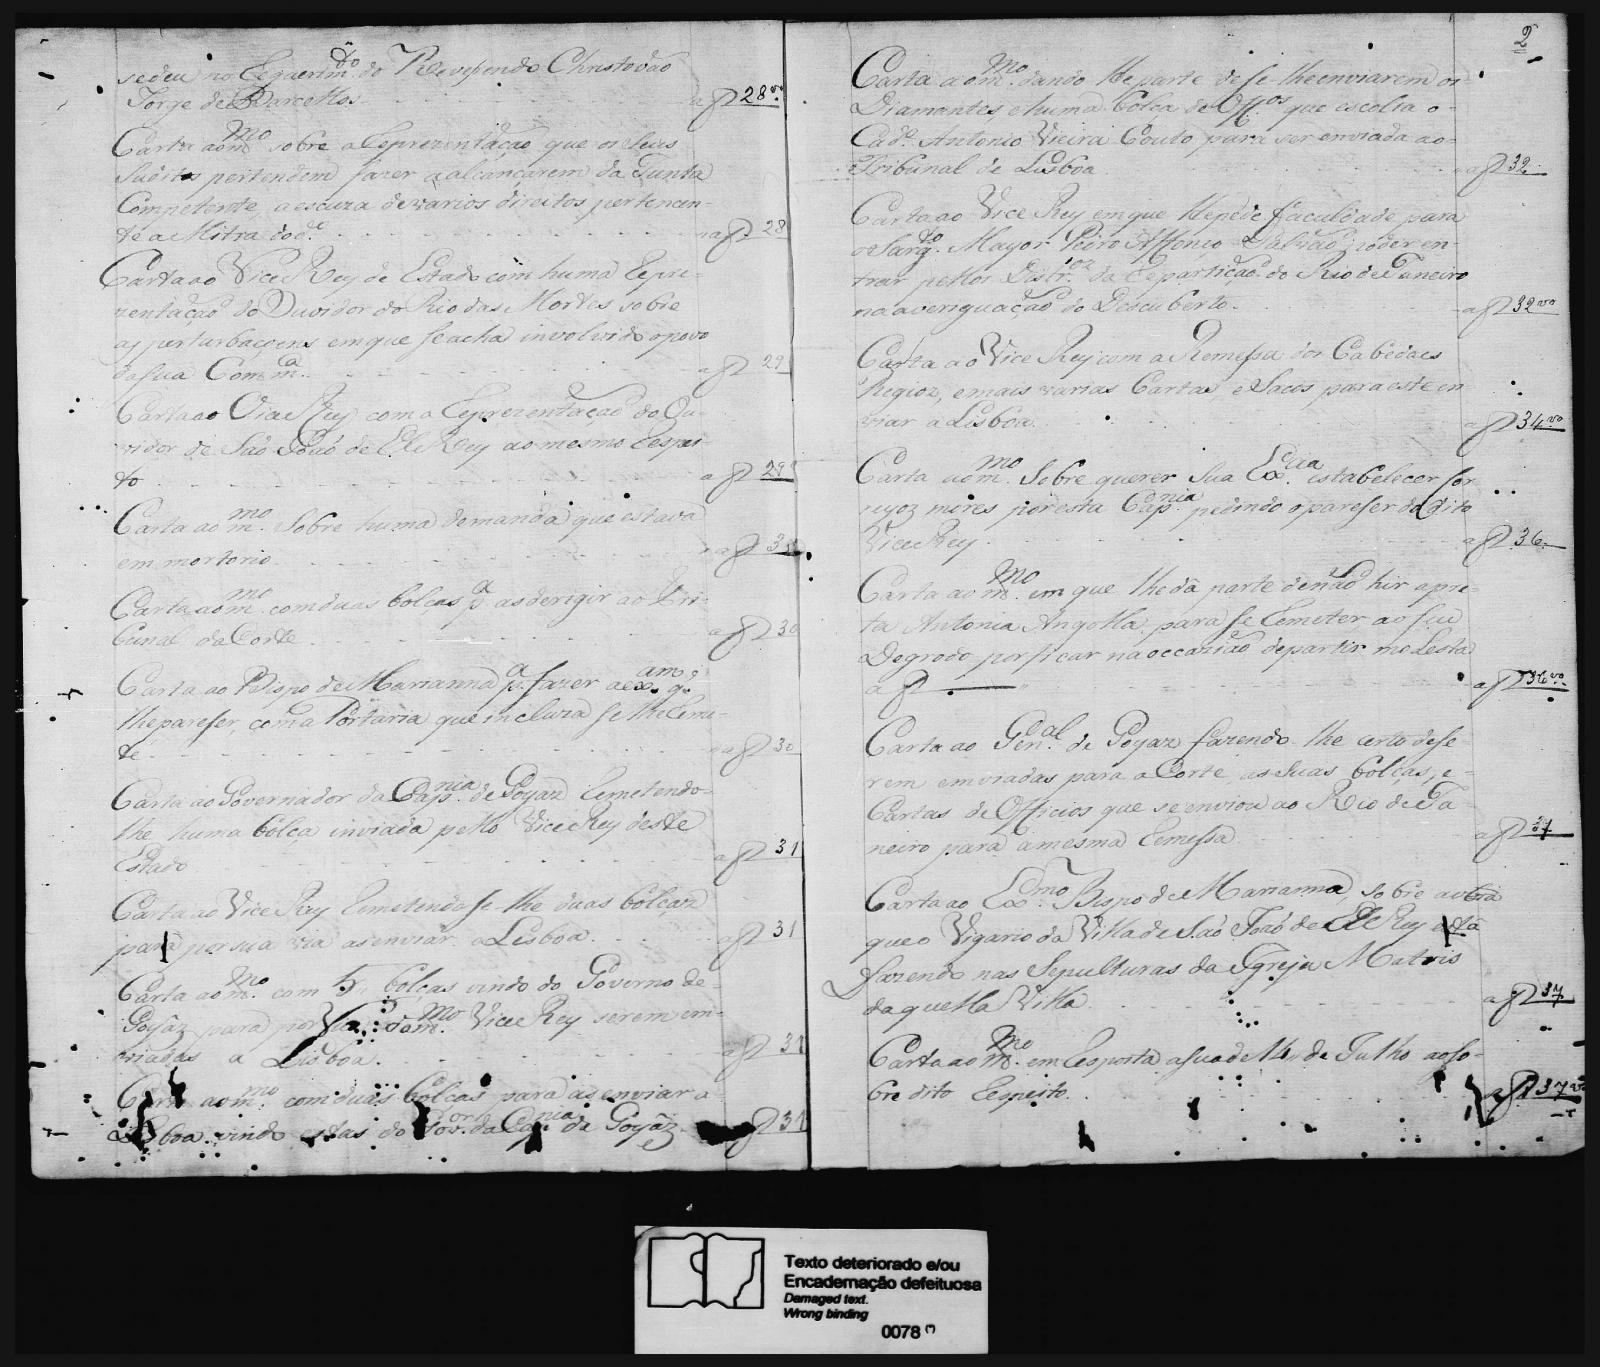 se deu no Requerim.to do Reverendo Christovão
Jorge de Barcellos - a f 28 vo
Carta ao m.mo sobre a Reprezentação que os seus
Suditos pertendem fazer a alcançarem da Junta
Competente, a escuza de varios direitos pertencen-
te a Mitra - a f 28
Carta ao Vice Rey do Estado com huma Repre-
zentação do Ouvidor do Rio das Mortes sobre
as perturbaçoens em que se acha involvido o povo
da sua Com.ca - a f 29
Carta ao Vice Rey com a Reprezentação do Ou-
vidor de São João de El Rey ao mesmo Respei-
to - a f 29
Carta ao m.mo Sobre huma demanda que estava
em mortorio - a f
Carta ao m.mo com duas bolças p.a as derigir ao Tri-
bunal da Corte - a f 30
Carta ao Bispo de Marianna p.a fazer a ex.am q.
lhe pareser, com a Portaria que incluza se lhe Reme-
te - a f 30
Carta ao Governador da Cap.nia de Goyaz Remetendo-
lhe huma bolça inviada pello Vice Rey deste
Estado - a f 31
Carta ao Vice Rey Remetendo se lhe duas bolças
para por sua via as enviar a Lisboa - a f 31
Carta ao m.mo com 5 bolças vindo do Governo de
Goyaz para por via do m.mo Vice Rey serem em-
viadas a Lisboa - a f 31
Carta ao m.mo com duas bolcas para as enviar a
Lisboa vindo estas do Gov.or da Cap.nia de Goyaz - a f 31
2
Carta ao m.mo dando lhe parte de se lhe enviarem os
Diamantes, e huma bolça de Off.os que escolta o
Cad.e Antonio Vieira Couto para ser enviada ao
Tribunal de Lisboa - a f 32
Carta ao Vice Rey em que lhe pede faculdade para
o Sarg.to Mayor Pedro Affonço Galvão poder en-
trar pellos Distr.os da Repartição do Rio de Janeiro
na averiguação do Descuberto - a f 32 vo
Carta ao Vice Rey com a Remessa dos Cabedaes
Regioz, e mais varias Cartas, e Sacos para este en-
viar a Lisboa - a f 34 vo
Carta ao m.mo Sobre querer Sua Ex.cia estabelecer Cor
reyoz mores por esta Cap.nia pedindo o pareser do dito
Vice Rey - a f 36
Carta ao m.mo em que lhe dá parte de não hir a pre-
ta Antonia Angolla para se Remeter ao seu
Degredo por ficar na occazião de partir molesta
a f - a f 36 vo
Carta ao Gen.al de Goyaz fazendo lhe certo de se-
rem enviadas para a Corte as suas bolças, e
Cartas de Officios que se enviou ao Rio de Ja-
neiro para a mesma Remessa - a f 37
Carta ao Ex.mo Bispo de Marianna, sobre a obra
que o Vigario da Villa de São João de El Rey está
fazendo nas Sepulturas da Igreja Matris
daquella Villa - a f 37
Carta ao m.mo em Resposta a sua de de Julho ao so-
bre dito Respeito - a f 37 vo
Texto deteriorado e/ou
Encadernação defeituosa
Damaged text.
Wrong binding
0078 (*)